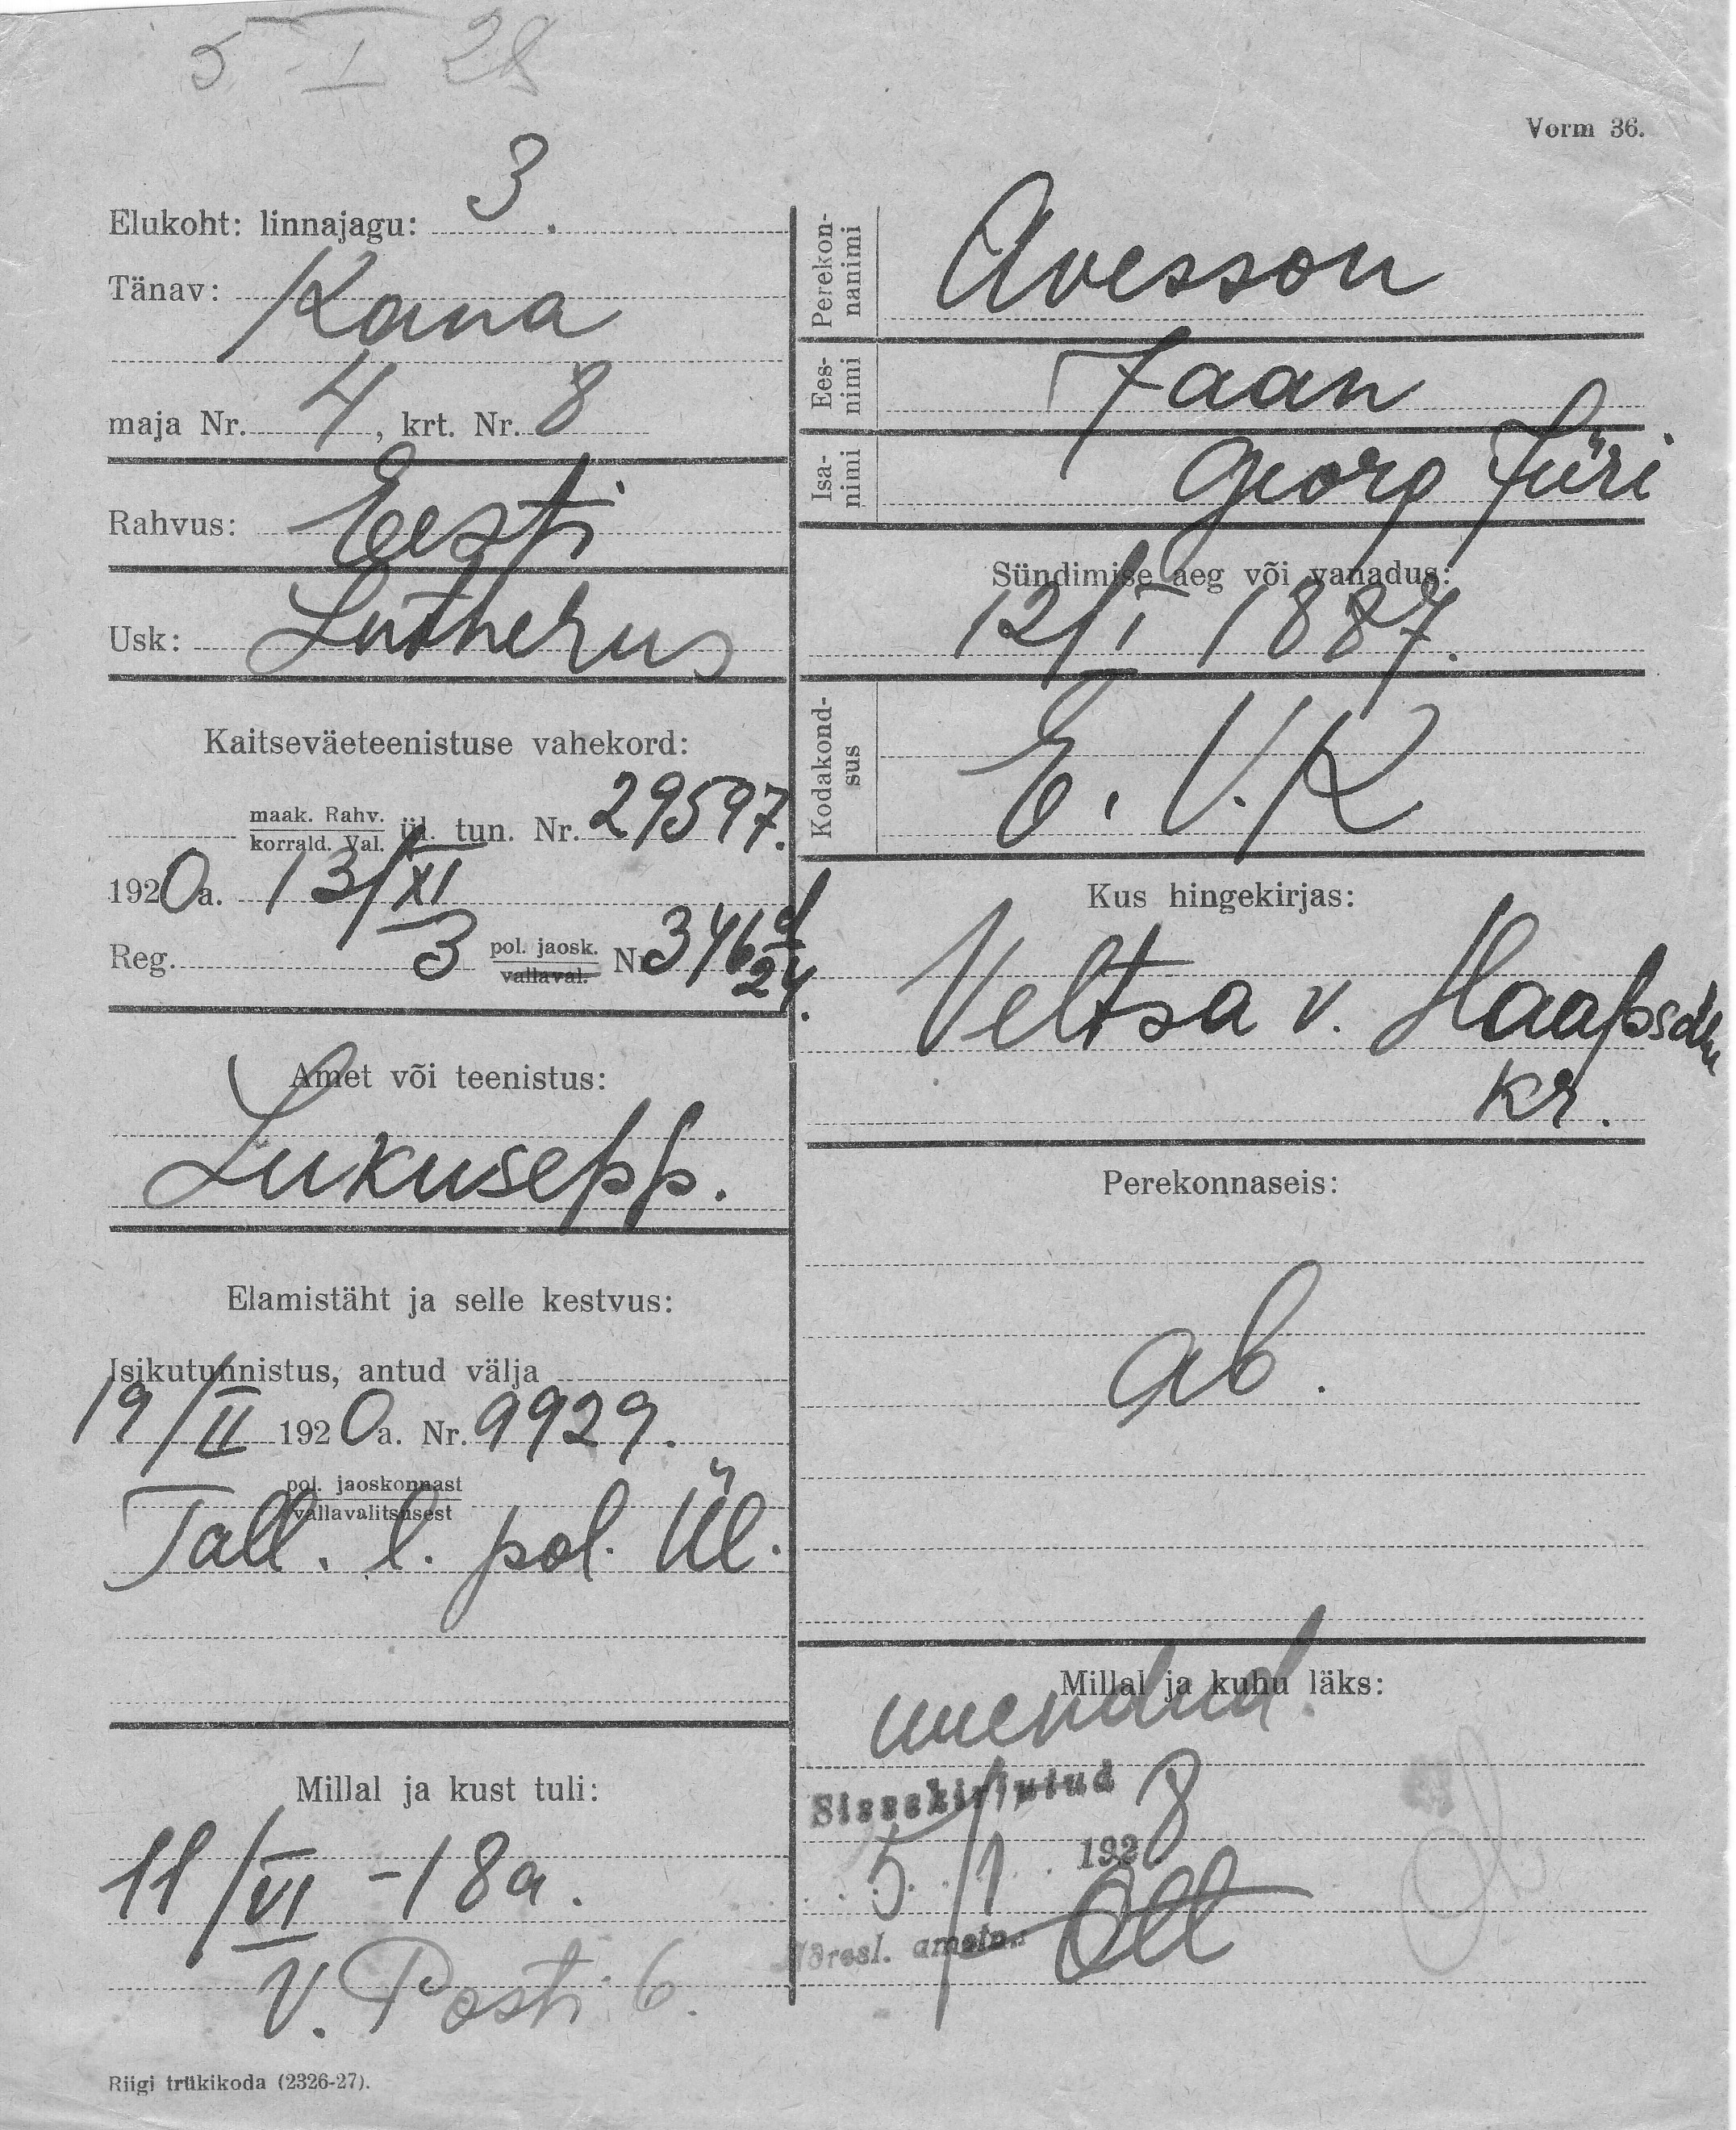 5 I 28
Vorm 36.
Elukoht: linnajagu: 3.
Tänav: Kana
maja Nr. 4, krt. Nr. 8
Rahvus: Eesti
Usk: Lutherus
Kaitseväeteenistuse vahekord:
maak. Rahv.
korrald. Val. ül. tun. Nr. 29597.
1920a. 13/XI
Reg. 3 pol. jaosk. vallaval. Nr 346 d/24.
Amet või teenistus:
Lukusepp.
Elamistäht ja selle kestvus:
Isikutunnistus, antud välja
19/II 1920a. Nr. 9929.
pol. jaoskonnast
vallavalitsusest
Tall. l. pol. Ül.
Millal ja kust tuli:
11/VI -18a.
V. Posti 6.
Riigi trükikoda (2326-27).
Perekon-
nanimi
Avesson
Ees-
nimi
Jaan
Isa-
nimi
Georg Jüri
Sündimise aeg või vanadus:
12/I 1887.
Kodakond-
sus
E. V. K
Kus hingekirjas:
Veltsa v. Haapsalu
kr.
Perekonnaseis:
ab.
Millal ja kuhu läks:
uuendud.
Sissekirjutud
5/1 1928
Adresl. ametn. Ott